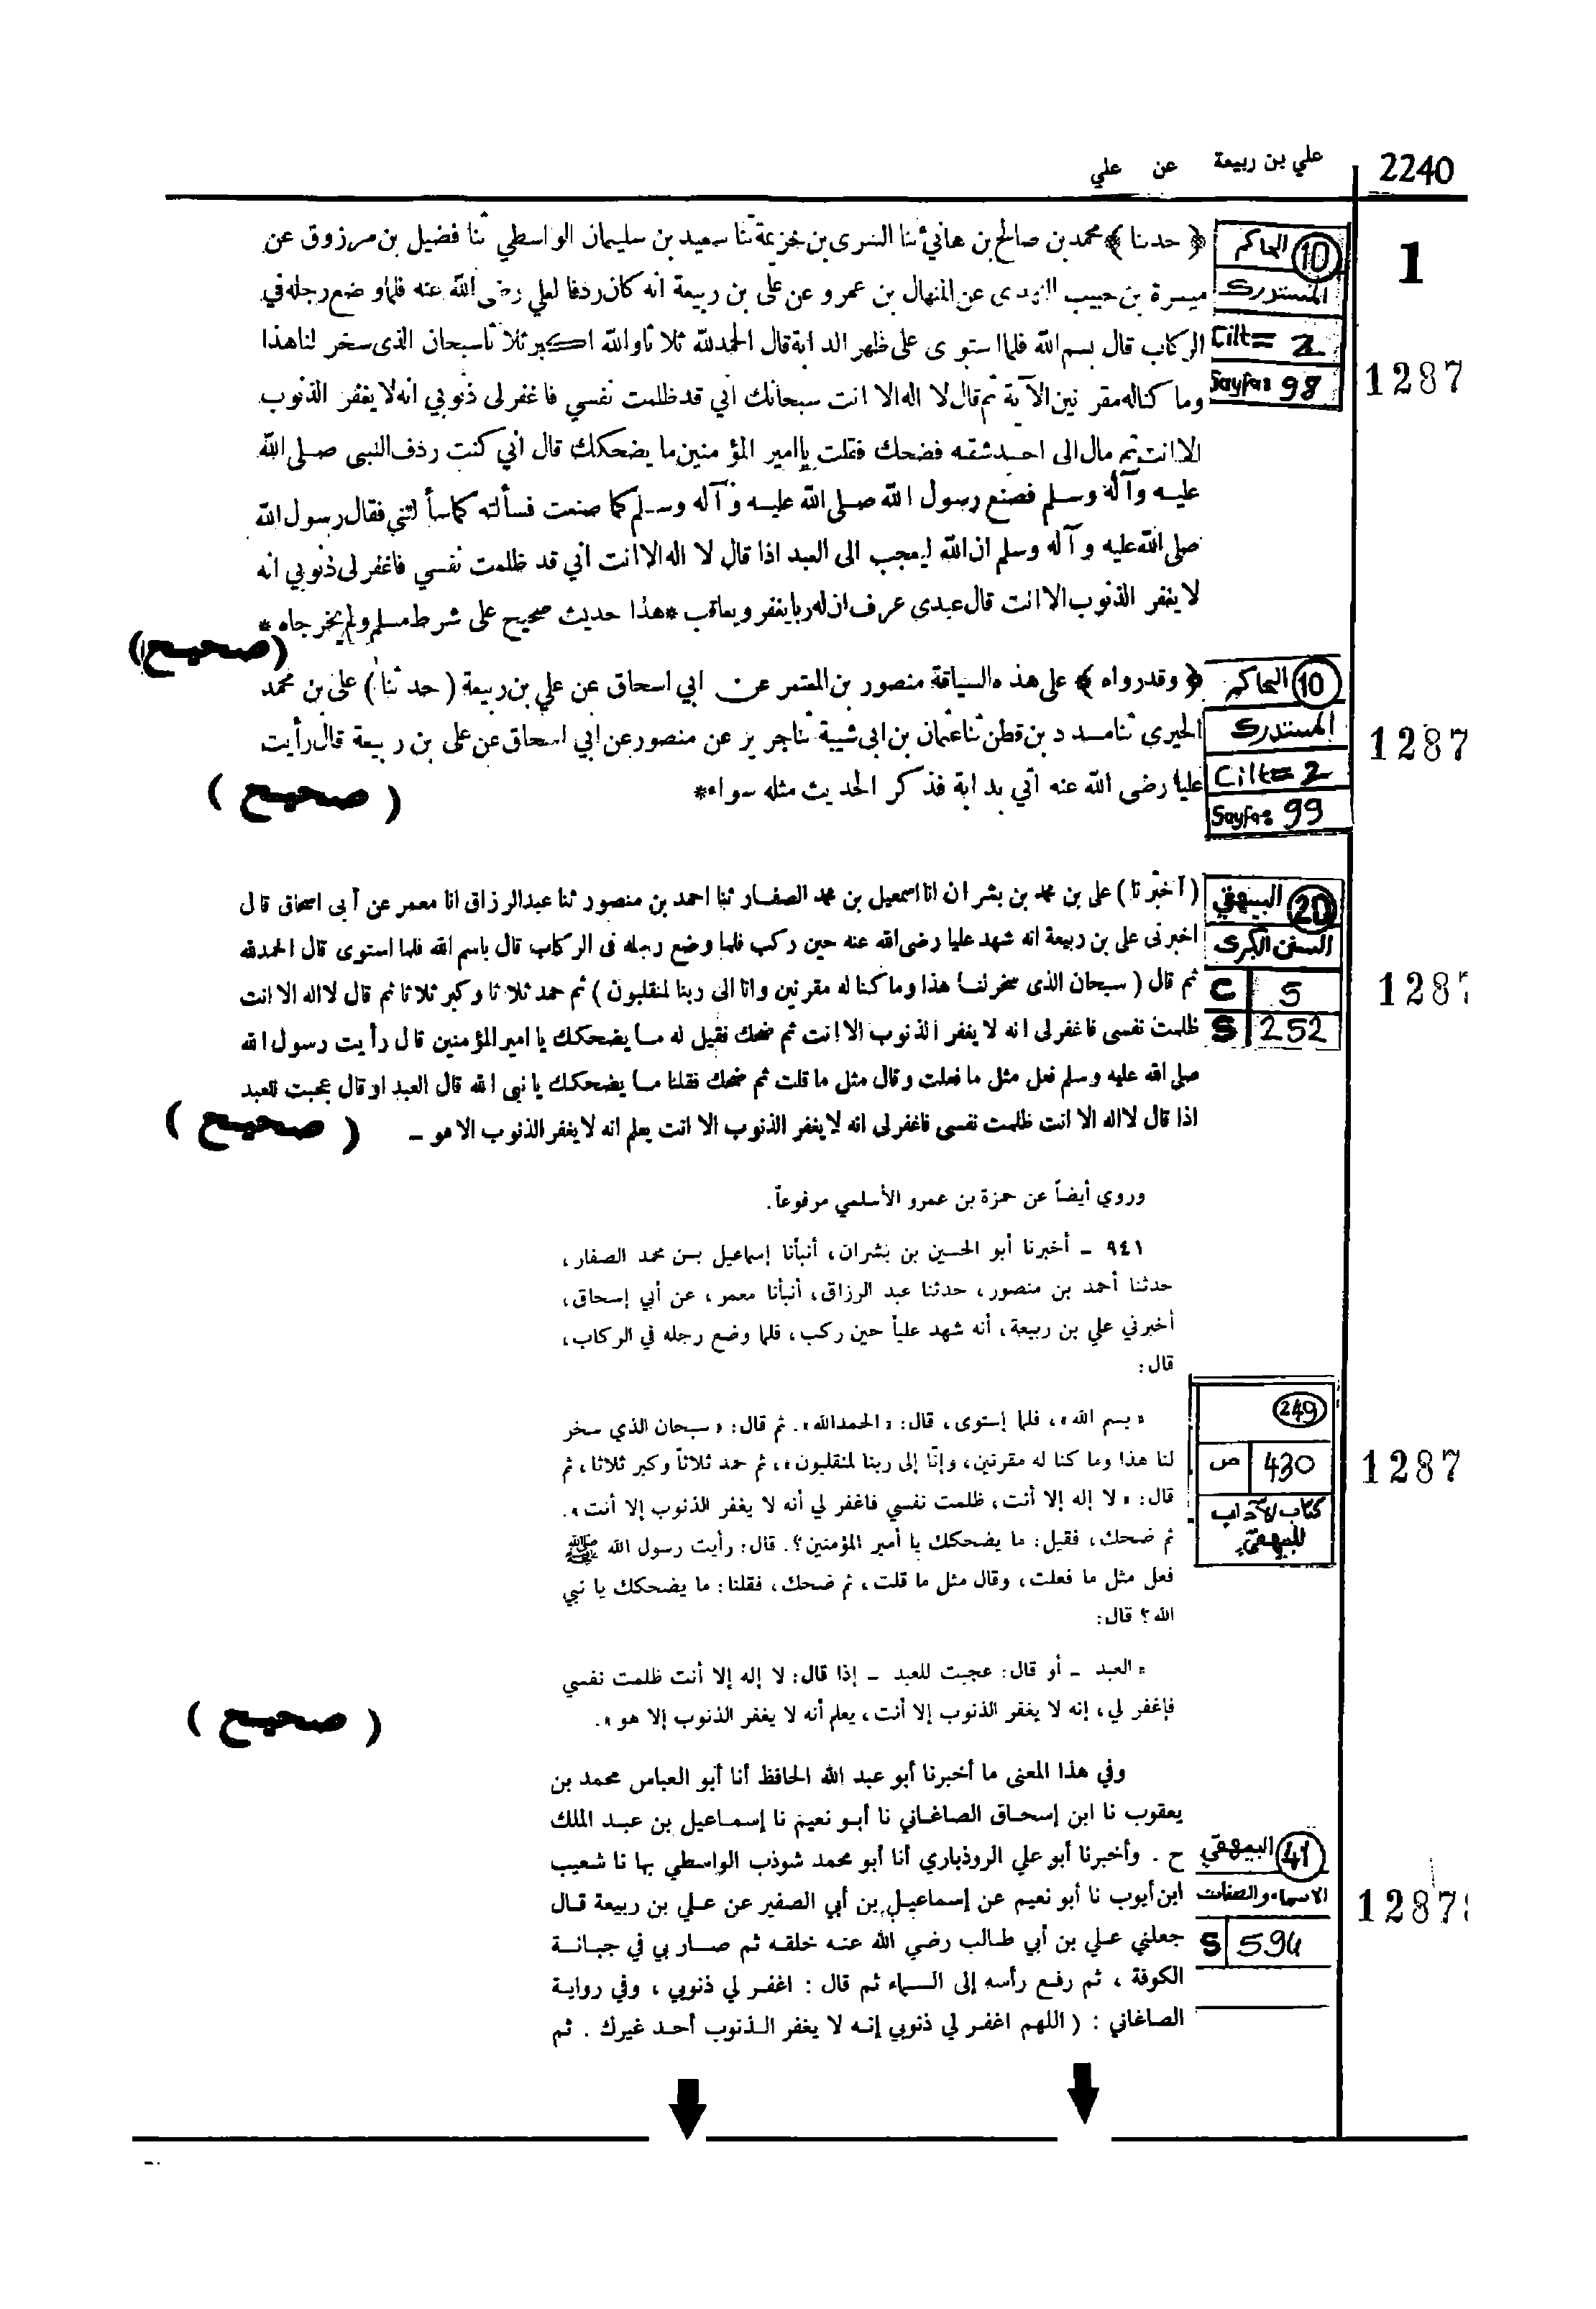 2240
علي بن ربيعة عن علي
1
1287
10 الحاكم
المستدرك
Cilt= 2
Sayfa: 98
﴿ حدثنا ﴾ محمد بن صالح بن هانئ ثنا السرى بن خزيمة ثنا سعيد بن سليمان الواسطي ثنا فضيل بن مرزوق عن
ميسرة بن حبيب النهدى عن المنهال بن عمرو عن على بن ربيعة انه كان ردفا لعلي رضى الله عنه فلما وضع رجله في
الركاب قال بسم الله فلما استوى على ظهر الدابة قال الحمد لله ثلاثا والله اكبر ثلاثا سبحان الذى سخر لنا هذا
وما كنا له مقرنين الآية ثم قال لا اله الا انت سبحانك اني قد ظلمت نفسي فاغفر لى ذنوبي انه لا يغفر الذنوب
الا انت ثم مال الى احد شقه فضحك فقلت يا امير المؤمنين ما يضحكك قال اني كنت ردف النبي صلى الله
عليه وآله وسلم فصنع رسول الله صلى الله عليه وآله وسلم كما صنعت فسألته كما سألتني فقال رسول الله
صلى الله عليه وآله وسلم ان الله ليعجب الى العبد اذا قال لا اله الا انت اني قد ظلمت نفسي فاغفر لى ذنوبي انه
لا يغفر الذنوب الا انت قال عبدى عرف ان له ربا يغفر ويعاقب * هذا حديث صحيح على شرط مسلم ولم يخرجاه *
(صحيح)
10 الحاكم
المستدرك
Cilt= 2
Sayfa: 99
1287
﴿ وقد رواه ﴾ على هذه السياقة منصور بن المعتمر عن ابي اسحاق عن علي بن ربيعة ( حدثنا ) على بن محمد
الحيرى ثنا مسدد بن قطن ثنا عثمان بن ابى شيبة ثنا جرير عن منصور عن ابي اسحاق عن على بن ربيعة قال رأيت
عليا رضى الله عنه اتي بدابة فذكر الحديث مثله سواء *
( صحيح )
20 البيهقي
السنن الكبرى
C 5
S 252
1287
( اخبرنا ) على بن محمد بن بشران انا اسمعيل بن محمد الصفار ثنا احمد بن منصور ثنا عبدالرزاق انا معمر عن ابى اسحاق قال
اخبرنى على بن ربيعة انه شهد عليا رضى الله عنه حين ركب فلما وضع رجله فى الركاب قال باسم الله فلما استوى قال الحمد لله
ثم قال ( سبحان الذى سخر لنا هذا وما كنا له مقرنين وانا الى ربنا لمنقلبون ) ثم حمد ثلاثا وكبر ثلاثا ثم قال لا اله الا انت
ظلمت نفسى فاغفر لى انه لا يغفر الذنوب الا انت ثم ضحك فقيل له ما يضحكك يا امير المؤمنين قال رأيت رسول الله
صلى الله عليه وسلم فعل مثل ما فعلت وقال مثل ما قلت ثم ضحك فقلنا ما يضحكك يا نبى الله قال العبد او قال عجبت للعبد
اذا قال لا اله الا انت ظلمت نفسى فاغفر لى انه لا يغفر الذنوب الا انت يعلم انه لا يغفر الذنوب الا هو -
( صحيح )
وروي أيضاً عن حمزة بن عمرو الأسلمي مرفوعاً.
٩٤١ - أخبرنا أبو الحسين بن بشران، أنبأنا إسماعيل بن محمد الصفار،
حدثنا أحمد بن منصور، حدثنا عبد الرزاق، أنبأنا معمر، عن أبي إسحاق،
أخبرني علي بن ربيعة، أنه شهد علياً حين ركب، فلما وضع رجله في الركاب،
قال:
249
ص 430
كتاب الآداب
للبيهقي
1287
« بسم الله »، فلما إستوى، قال: « الحمدالله ». ثم قال: « سبحان الذي سخر
لنا هذا وما كنا له مقرنين، وإنّا إلى ربنا لمنقلبون »، ثم حمد ثلاثاً وكبر ثلاثا، ثم
قال: « لا إله إلا أنت، ظلمت نفسي فاغفر لي أنه لا يغفر الذنوب إلا أنت ».
ثم ضحك، فقيل: ما يضحكك يا أمير المؤمنين؟. قال: رأيت رسول الله ﷺ
فعل مثل ما فعلت، وقال مثل ما قلت، ثم ضحك، فقلنا: ما يضحكك يا نبي
الله؟ قال:
« العبد - أو قال: عجبت للعبد - إذا قال: لا إله إلا أنت ظلمت نفسي
فإغفر لي، إنه لا يغفر الذنوب إلا أنت، يعلم أنه لا يغفر الذنوب إلا هو ».
( صحيح )
وفي هذا المعنى ما أخبرنا أبو عبد الله الحافظ أنا أبو العباس محمد بن
يعقوب نا ابن إسحاق الصاغاني نا أبو نعيم نا إسماعيل بن عبد الملك
ح . وأخبرنا أبو علي الروذباري أنا أبو محمد شوذب الواسطي بها نا شعيب
ابن أيوب نا أبو نعيم عن إسماعيل بن أبي الصفير عن علي بن ربيعة قال
جعلني علي بن أبي طالب رضي الله عنه خلفه ثم صار بي في جبانة
الكوفة ، ثم رفع رأسه إلى السماء ثم قال : اغفر لي ذنوبي ، وفي رواية
الصاغاني : ( اللهم اغفر لي ذنوبي إنه لا يغفر الذنوب أحد غيرك . ثم
41 البيهقي
الاسماء والصفات
S 594
1287